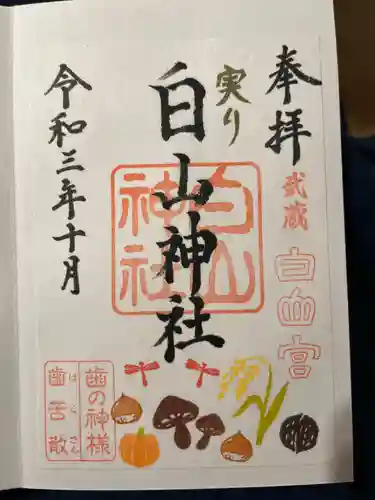 奉拝
武蔵
白山宮
実り
白山神社
白山
神社
令和三年十月
歯の神様
歯舌散
はぐさん